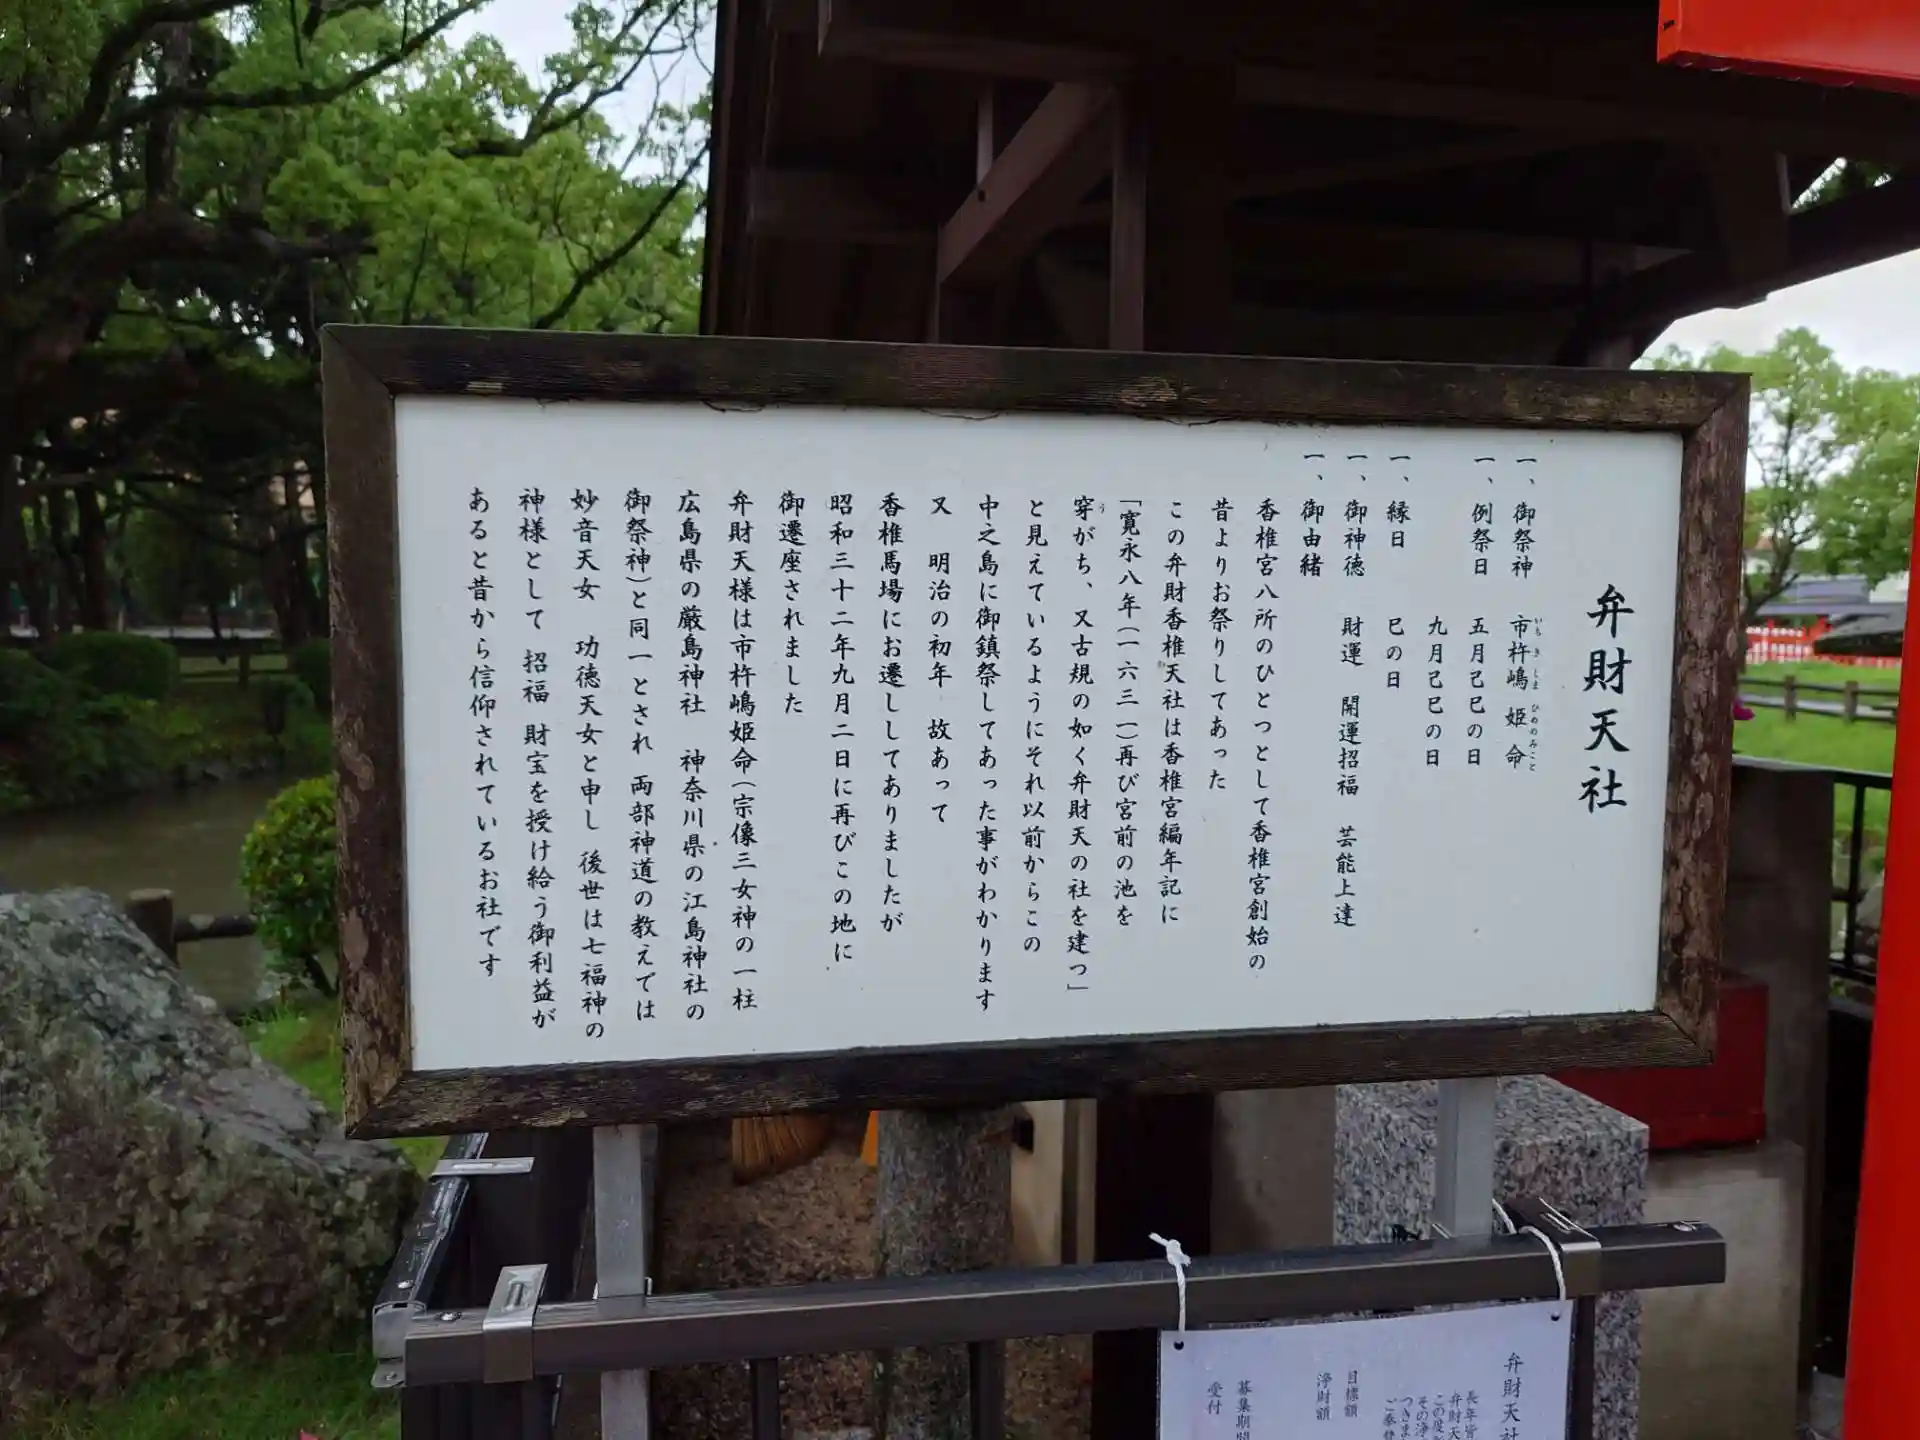 弁財天社
一、御祭神 市杵嶋姫命
いちきしまひめのみこと
一、例祭日 五月己巳の日
九月己巳の日
一、縁日 巳の日
一、御神徳 財運 開運招福 芸能上達
一、御由緒
香椎宮八所のひとつとして香椎宮創始の
昔よりお祭りしてあった
この弁財香椎天社は香椎宮編年記に
「寛永八年(一六三一)再び宮前の池を
穿がち、又古規の如く弁財天の社を建つ」
う
と見えているようにそれ以前からこの
中之島に御鎮祭してあった事がわかります
又 明治の初年 故あって
香椎馬場にお遷ししてありましたが
昭和三十二年九月二日に再びこの地に
御遷座されました
弁財天様は市杵嶋姫命(宗像三女神の一柱
広島県の厳島神社 神奈川県の江島神社の
御祭神)と同一とされ 両部神道の教えでは
妙音天女 功徳天女と申し 後世は七福神の
神様として 招福 財宝を授け給う御利益が
あると昔から信仰されているお社です
弁財天社
長年皆
弁財天
この度
その浄
つきま
ご奉賛
目標額
浄財額
募集期間
受付